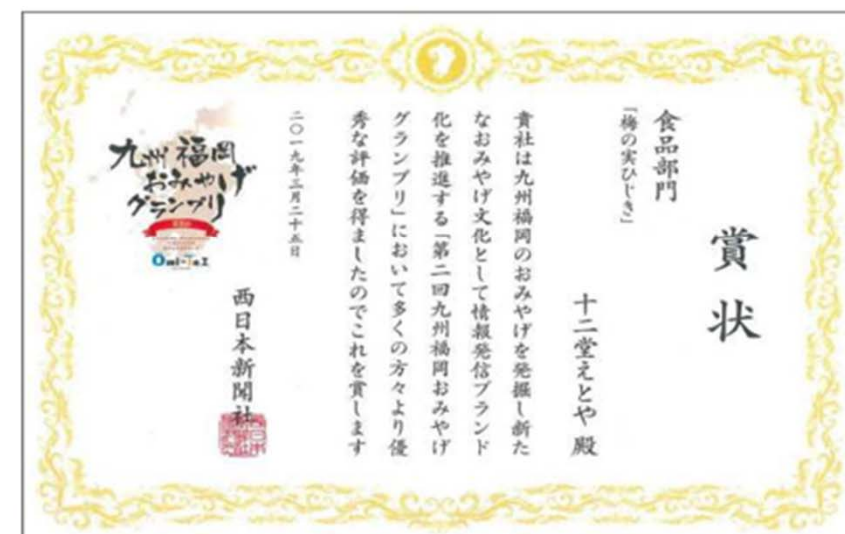 賞状
食品部門
「梅の実ひじき」
十二堂えとや 殿
貴社は九州福岡のおみやげを発掘し新た
なおみやげ文化として情報発信ブランド
化を推進する「第二回九州福岡おみやげ
グランプリ」において多くの方々より優
秀な評価を得ましたのでこれを賞します
二〇一九年三月二十五日
西日本新聞社
九州福岡
おみやげ
グランプリ